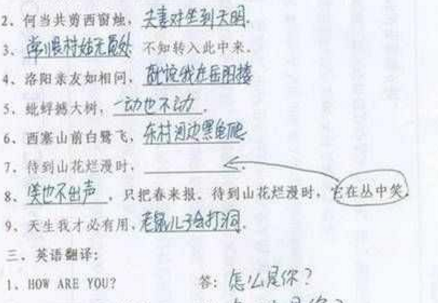 2、何当共剪西窗烛，夫妻对坐到天明.
3、常恨村姑无觅处 不知转入此中来。
4、洛阳亲友如相问，就说我在岳阳楼
5、蚍蜉撼大树，一动也不动.
6、西塞山前白鹭飞，东村河边黑龟爬
7、待到山花烂漫时，
8、俏也不出声，只把春来报。待到山花烂漫时，它在丛中笑.
9、天生我才必有用，老鼠儿子会打洞.
三、英语翻译：
1、HOW ARE YOU? 答：怎么是你？